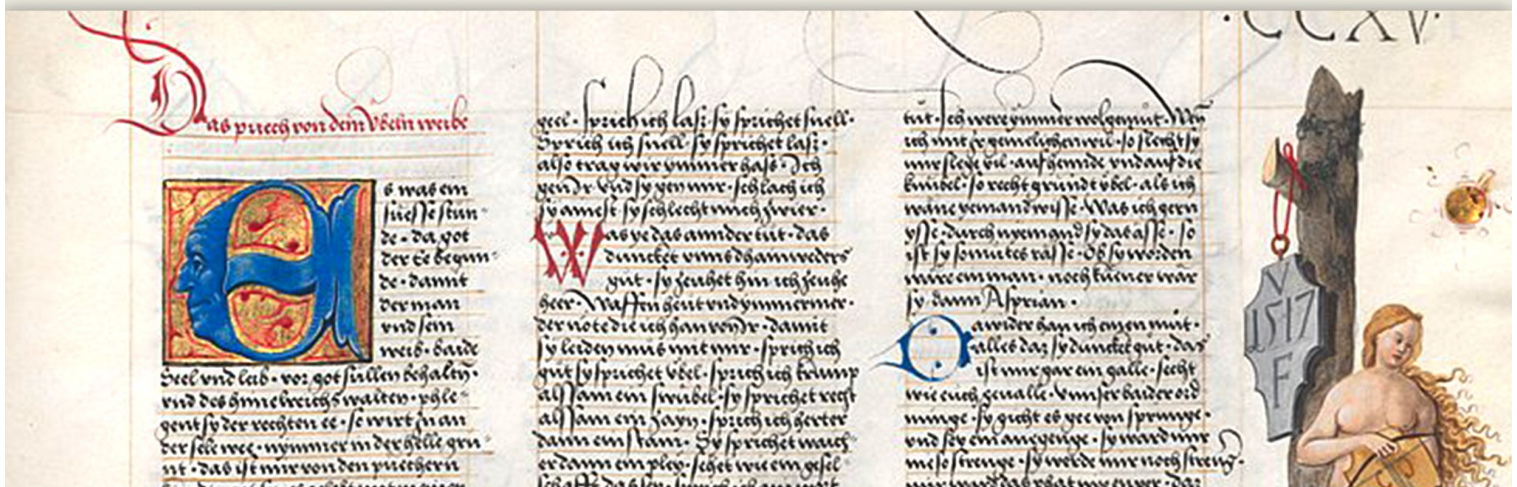 ·CCXV·
Das puech von dem Übeln weibe
Es was ein
süesse stun-
de · da got
der Ee begun-
de · damit
der man
vnd sein
weib · baide
Seel vnd leib · vor got sullen behaltn̄ ·
vnd des himelreichs walten · phle-
gent sy der rechten ee · so wirt jn an
der sele wee · nymmer in der helle gru-
nt · das ist mir von den puechern
geel · sprich ich las · sy sprichet snell ·
Sprich ich snell · sy sprichet las ·
also trag wir ymmer hass · Ich
gen Ir vnd sy gen mir · schlach ich
sy ainest sy schlecht mich zwir ·
Was ye das annder tůt · das
duncket vnns dhainweders
gůt · sy zeuhet hin ich zeuhe
heer · Waffen heut vnd ymmermer ·
der note die ich han von Ir · damit
sy leiden můs mit mir · sprich ich
gůt sy sprichet vbel · sprich ich krump
alssam ein · sy sprichet recht
alssam ein zayn · sprich ich herter
dann ein stain · Sy sprichet waich-
er dann ein pley · sehet wie ein gesel-
schafft das sey
tůt · Ich were ymmer wolgemůt ·
ich mit jr · so slecht sy
mir slege vil · auf hennde vnd auf die
knübel · so recht grundt übel · als ich
wäne yemand wisse · Was ich gern
ysse · durch nyemand sy das asse · so
ist sy · Ob sy worden
wäre ein man · noch küener wär
sy dann Asprian ·
Da wider han ich einen můt ·
alles das sy duncket gůt · das
ist mir gar ein galle · secht
wie euch geualle · vnnser baider ord
nunge · sy gicht es gee von sprunge ·
vnd sey ein anegenge · sy ward mir
nie so strenge · sy werde mir noch
V
1517
F